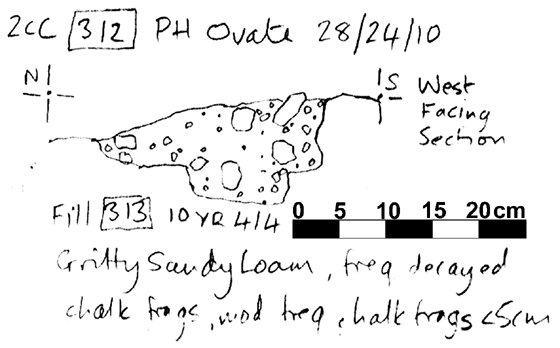 2CC 312 PH Ovate 28/24/10
N S West
Facing
Section
Fill 313 10YR 4/4 0 5 10 15 20cm
Gritty Sandy Loam, freq decayed
chalk frags, mod freq, chalk frags <5cm